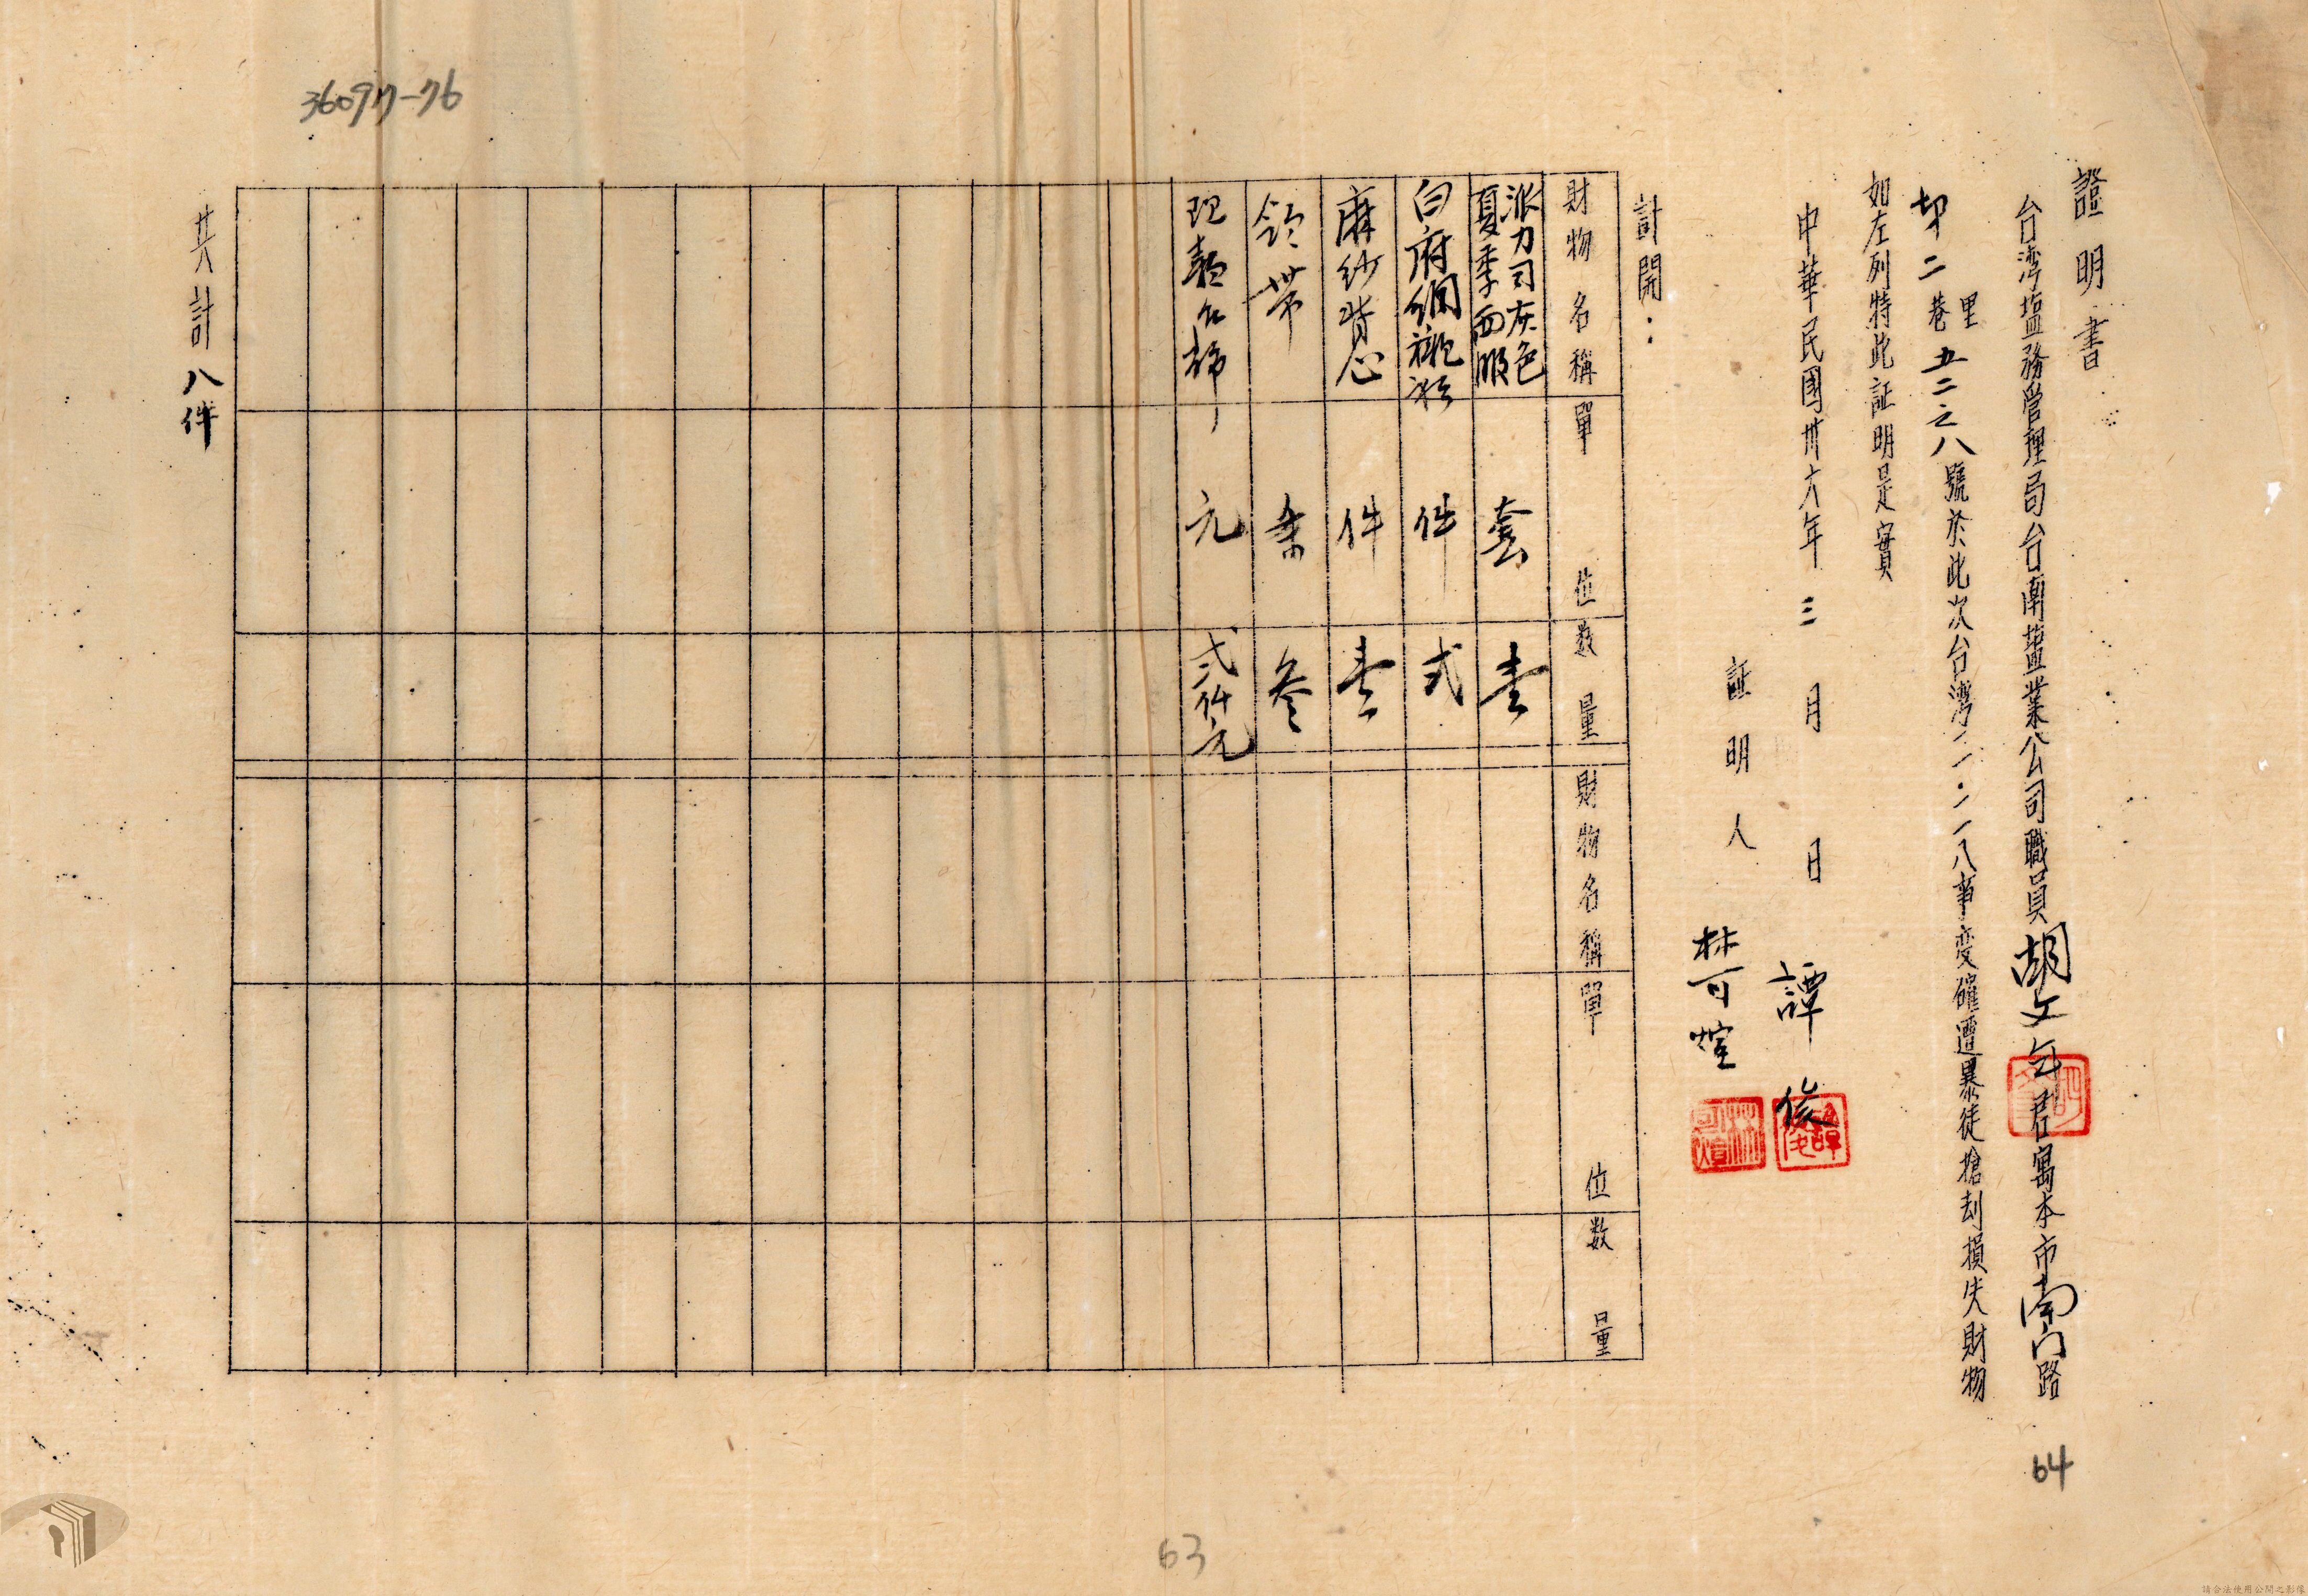 證明書
台灣塩務管理局台南塩業公司職員胡文年君寓本市南门路
二里巷五二之八號於此次台灣二·二八事变確遭暴徒搶刦損失財物
如左列特此証明是實
中華民國卅六年三月 日
証明人
譚俊
林可煊
計開：
財物名稱 單位 数量 財物名稱 單位 数量
派力司灰色夏季西服 套 壹
白府綢襯衫 件 弍
麻紗背心 件 壹
領帶 条 叁
現款台幣 元 弍仟元
共計八件
36097-76
64
63
請合法使用公開之影像